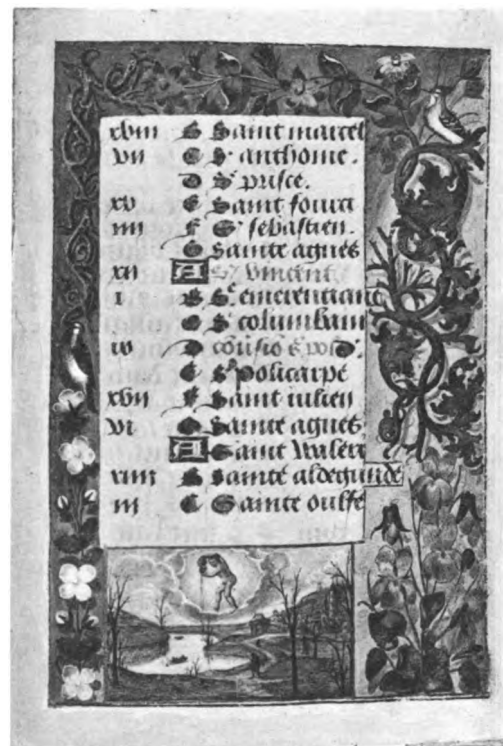 xviii B Saint marcel
vii C S anthoine.
D S prisce.
xv E Saint fourci
iiii F S sebastien.
G Sainte agnes
xii A S vincent
i B Se emerentiane
C S columbain
ix D 
E S Policarpe
xvii F Saint iulien
vi G Sainte agnes
A Saint Waleri
xiiii B Sainte aldegunde
iii C Sainte oulfe